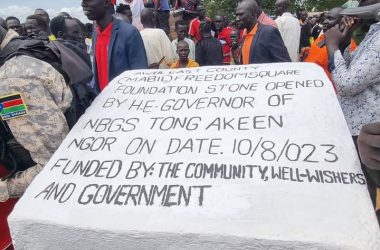 AWEIL EAST COUNTY
(MABIOR) FREEDOM SQUARE
FOUNDATION STONE OPENED
BY H.E. GOVERNOR OF
NBGS TONG AKEEN
NGOR ON DATE. 10/8/023
FUNDED BY: THE COMMUNITY, WELL-WISHERS
AND GOVERNMENT